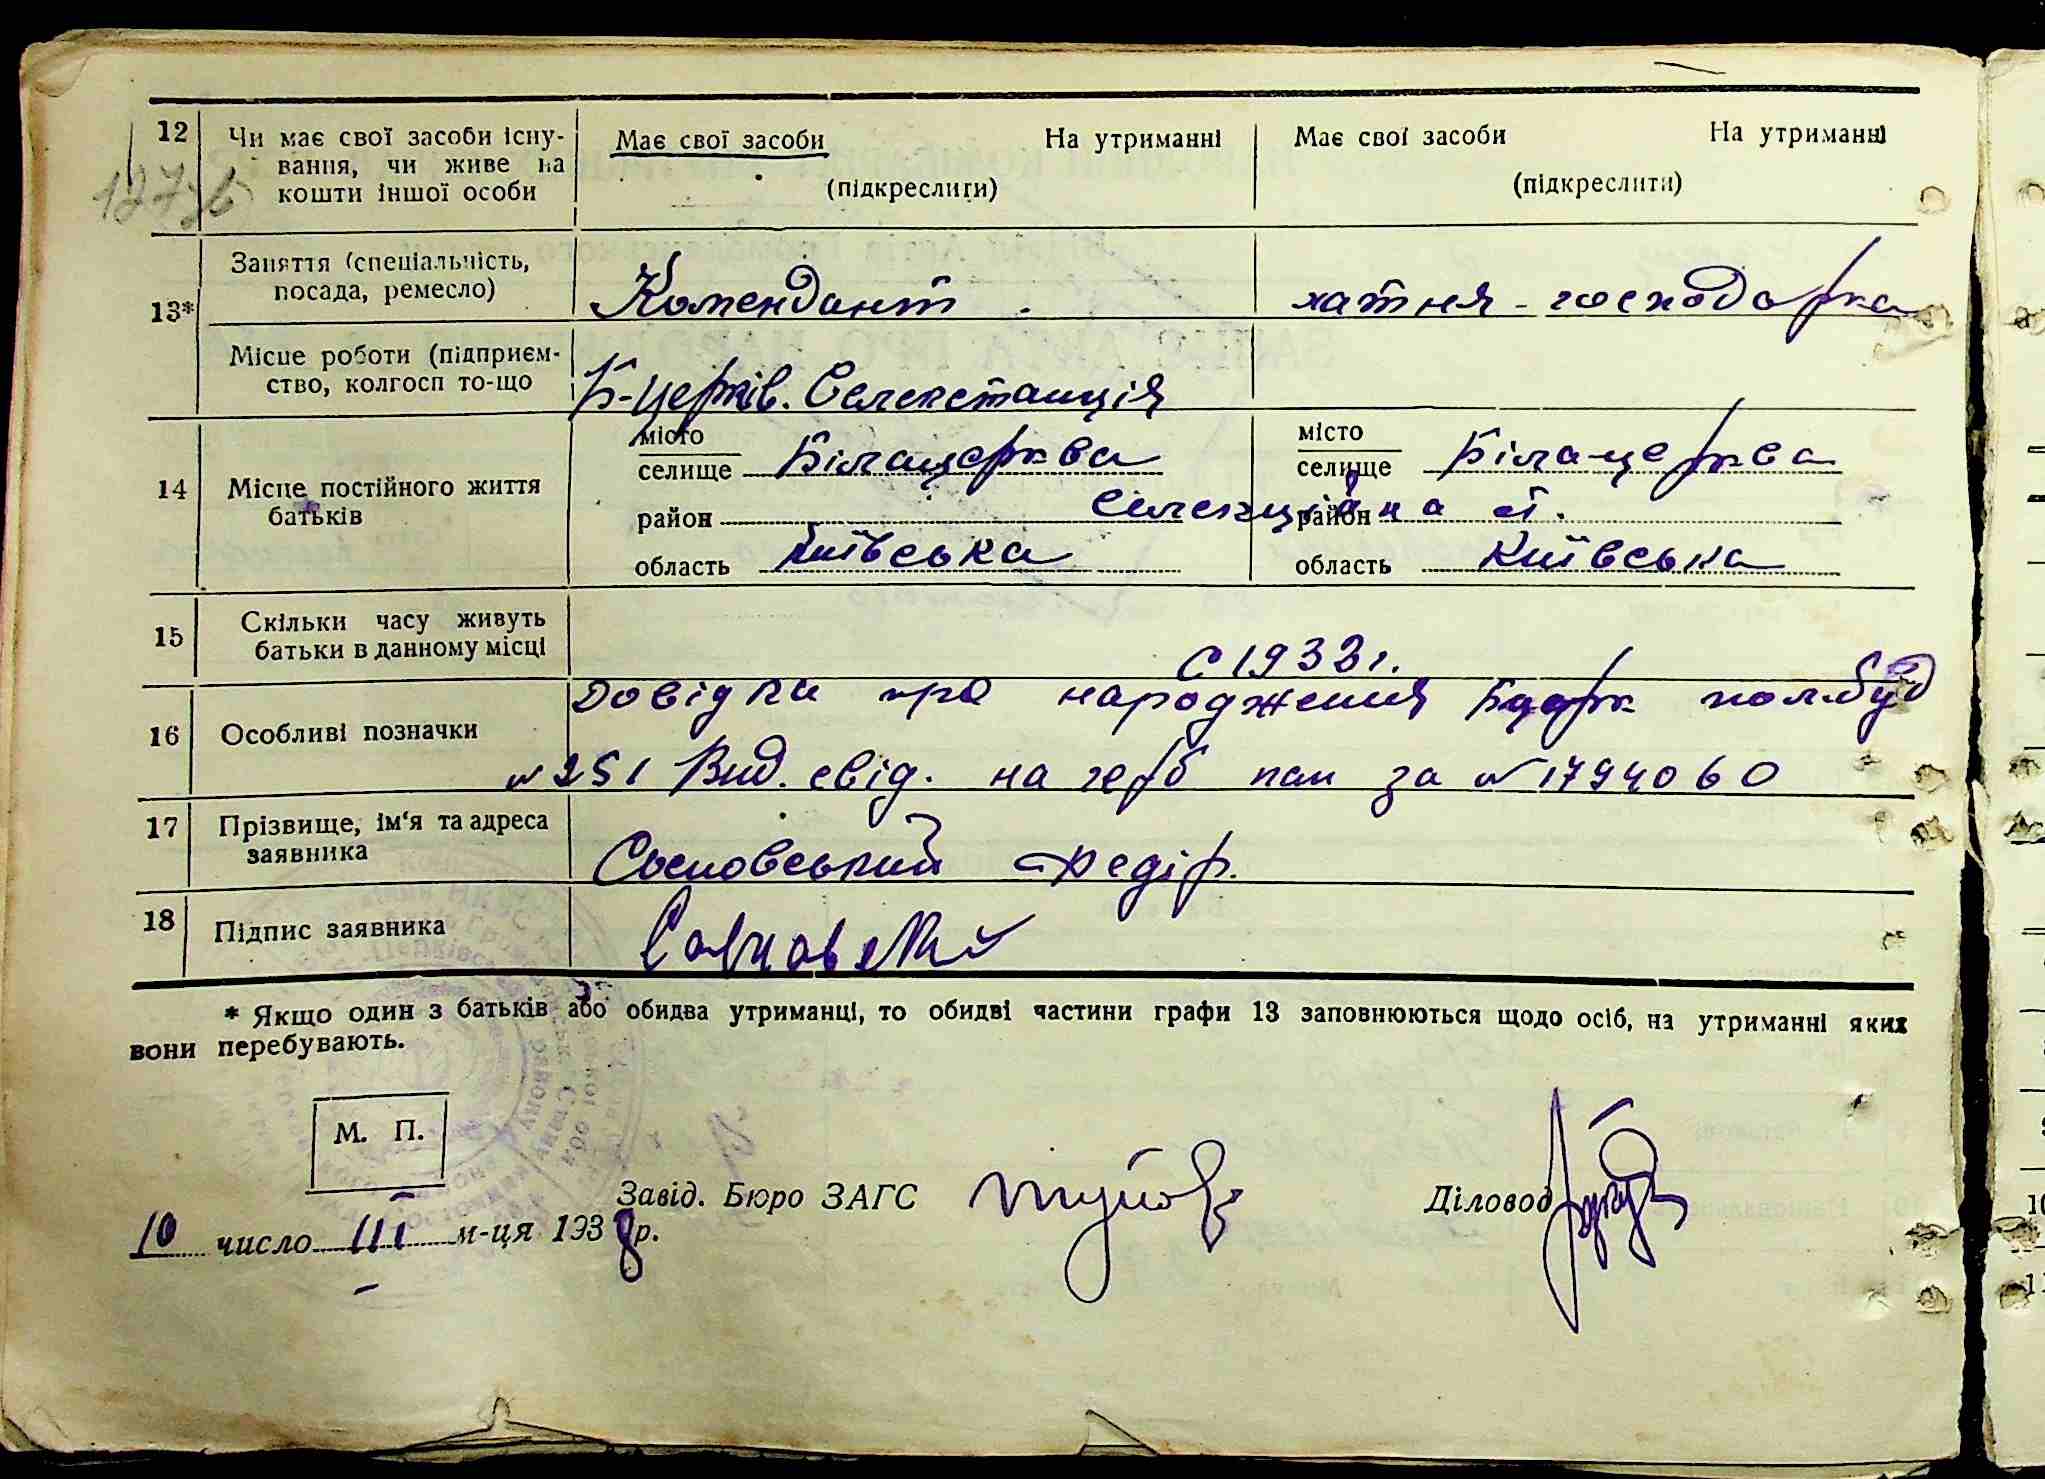 12 Чи має свої засоби існу-
вання, чи живе на
кошти іншої особи
Має свої засоби На утриманні
(підкреслити)
Має свої засоби На утриманні
(підкреслити)
13* Заняття (спеціальність,
посада, ремесло)
Комендант. хатня-господарка
Місце роботи (підприєм-
ство, колгосп то-що
Б-Церків. Селекстанція
14 Місце постійного життя
батьків
місто
селище Білацерква
район
область Київська
місто
селище Біла-церква
район
область Київська
Селекційна ст.
15 Скільки часу живуть
батьки в данному місці
С 1933 г.
16 Особливі позначки
Довідка про народження полбуд
№ 251 Вид. свід. на герб пап за № 1794060
17 Прізвище, ім'я та адреса
заявника
Сосновський Федір.
18 Підпис заявника
* Якщо один з батьків або обидва утриманці, то обидві частини графи 13 заповнюються щодо осіб, на утриманні яких
вони перебувають.
М. П.
Завід. Бюро ЗАГС
Діловод
10 число III м-ця 1938 р.